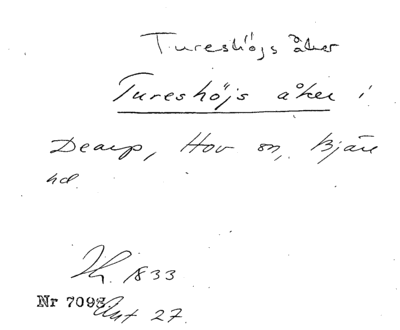 Tureshöjs åker
Tureshöjs åker i
Dearp, Hov sn, Bjäre
hd.
Lh. 1833
Nr 7093 Akt 27.